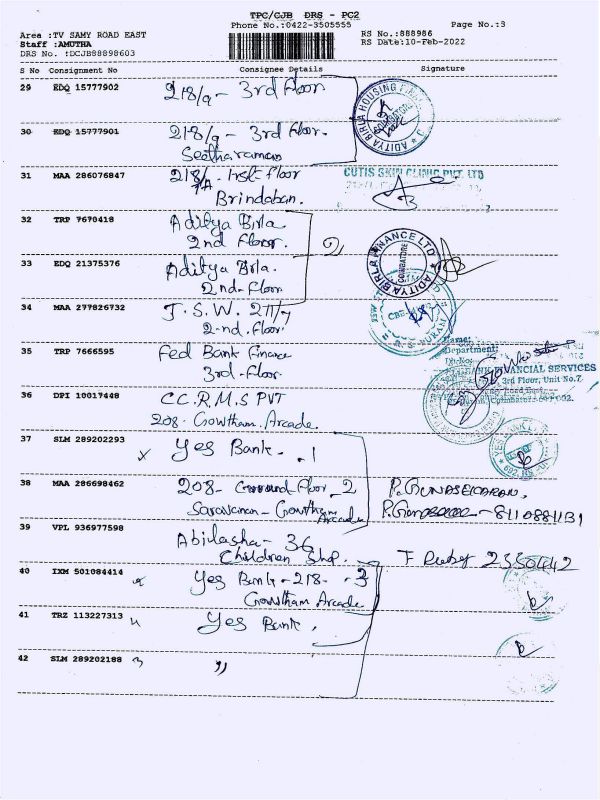 TPC/CJB DRS - PC2
Phone No.:0422-3505555
Page No.:3
Area :TV SAMY ROAD EAST
RS No.:888986
Staff :AMUTHA
RS Date:10-Feb-2022
DRS No. :DCJB88898603
S No Consignment No Consignee Details Signature
29 EDQ 15777902 218/9 - 3rd Floor
ADITYA BIRLA HOUSING
30 EDQ 15777901 218/9 - 3rd Floor.
Seetharaman
31 MAA 286076847 218/ Ist Floor
CUTIS SKIN CLINIC PVT. LTD
Brindaban.
32 TRP 7670418 Aditya Birla
2nd Floor.
2
ADITYA BIRLA FINANCE LTD
COIMBATORE
33 EDQ 21375376 Aditya Birla.
2nd-Floor
34 MAA 277826732 J.S.W. 211/
2-nd. Floor
35 TRP 7666595 Fed Bank Finance
3rd-Floor
Name:
Department:
FINANCIAL SERVICES
3rd Floor, Unit No.7
36 DPI 10017448 C.C.R.M.S PVT
208. Gowtham. Arcade.
37 SLM 289202293 x Yes Bank - .1
YES BANK
38 MAA 286698462 208- Ground Floor 2
Saravanan - Gowtham
Arcade
P. GUNASEKARAN.
8110881131
39 VPL 936977598 Abilasha - 36
Children Shop.
2350442
40 IXM 501084414 Yes Bank - 218 - 3
Gowtham Arcade
41 TRZ 113227313 Yes Bank.
42 SLM 289202188 ,,